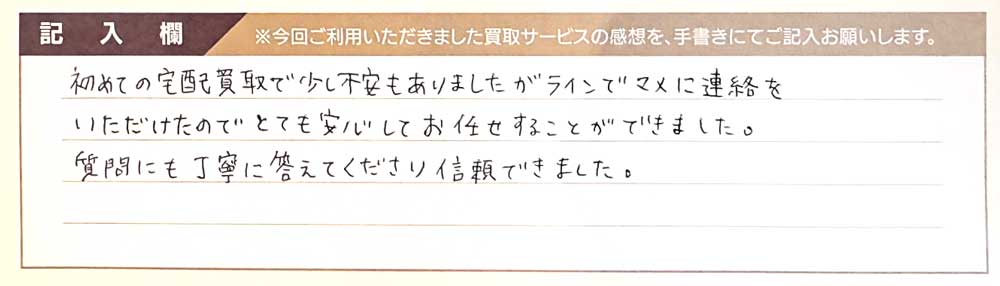 記入欄 ※今回ご利用いただきました買取サービスの感想を、手書きにてご記入お願いします。
初めての宅配買取で少し不安もありましたがラインでマメに連絡を
いただけたのでとても安心してお任せすることができました。
質問にも丁寧に答えてくださり信頼できました。